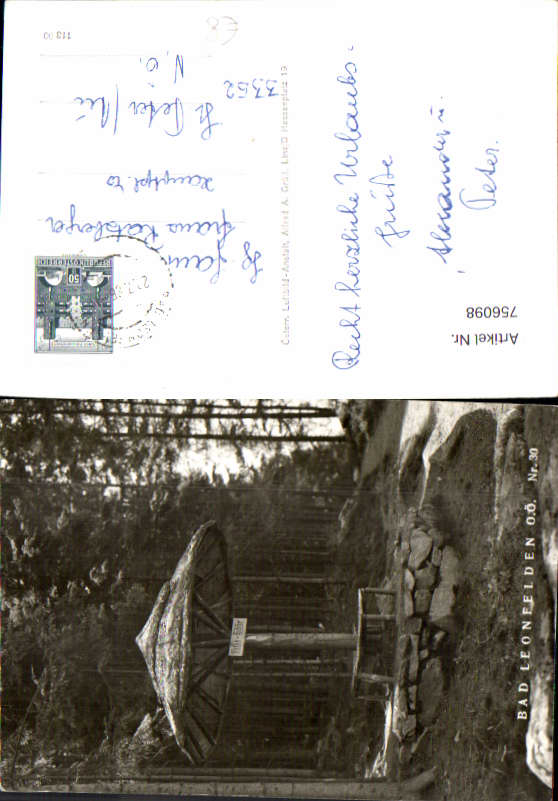 113 00
Recht herzliche Urlaubs-
Grüße
Alexander u.
Peter.
Österr. Luftbild-Anstalt, Alfred A. Gräil, Linz/D Hessenplatz 19
REPUBLIK ÖSTERREICH
50
Franz
Hauptpl. 20
St. Peter/Au
3352
N.Ö.
Artikel Nr.
756098
BAD LEONFELDEN O.Ö. Nr. 30